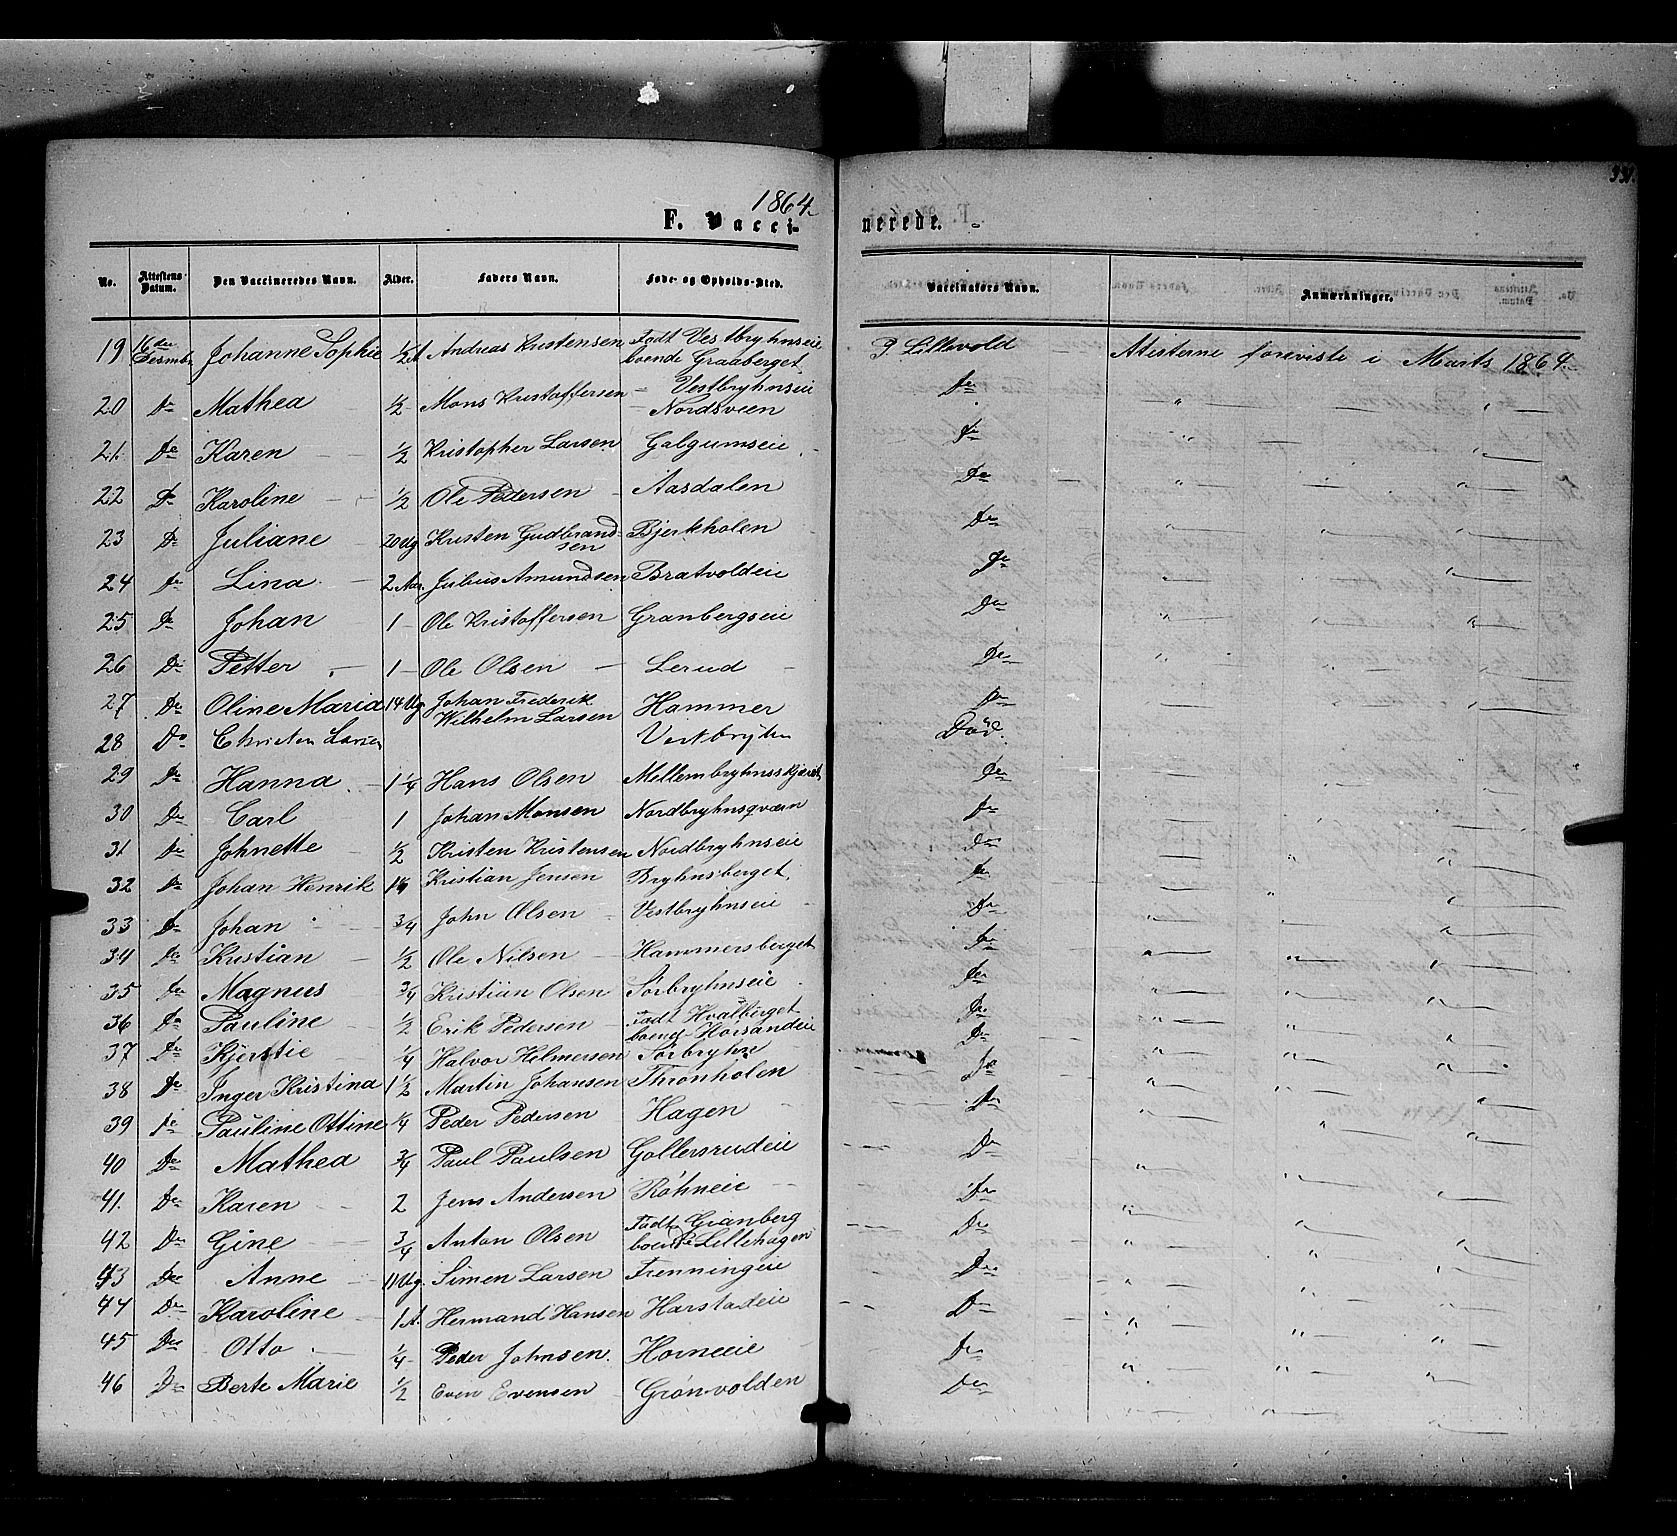 331.
1864.
F. Vacci-
nerede.
No. Attestens Datum. Den Vaccineredes Navn. Alder. Faders Navn. Føde- og Opholds-Sted. Vaccinatørs Navn. Anmærkninger.
19 16de Desemb. Johanne Sophie 1/2 A Andreas Kristensen Født Vestbryhnseie boende Graaberget P Lillevold Atisterne foreviste i Marts 1864.
20 Do Mathea 1/2 Mons Kristoffersen Vestbryhnseie Nordsveen Do " " "
21. Do Karen 1/2 Kristopher Larsen Galgumseie Do " "
22 Do Karoline 1/2 Ole Pedersen Aasdalen Do " " "
23 Do Juliane 20 Ug Kristen Gudbrandsen Bjerkholen Do " " "
24 Do Lina 2 Aar. Julius Amundsen Bratvoldeie Do " " "
25 Do Johan 1 Ole Kristoffersen Granbergseie Do " " "
26 Do Petter 1 Ole Olsen Lerud Do " " "
27 Do Oline Maria 14 Ug Johan Frederik Wilhelm Larsen Hammer Do " " "
28 Do Christen Larsen Vestbryhn Død.
29 Do Hanna 1 1/4 Hans Olsen Mellembryhnskjæret Do " " "
30 Do Carl 1 Johan Monsen Nordbryhnsqværn Do " " "
31 Do Johnette 1/2 Kristen Kristensen Nordbryhnseie Do " "
32 Do Johan Henrik Kristian Jensen Bryhnsberget Do " "
33 Do Johan 3/4 John Olsen Vestbryhnseie Do " " "
34 Do Kristian 1/2 Ole Nilsen Hammersberget Do " " "
35 Do Magnus 3/4 Kristian Olsen Sørbryhnseie Do " " "
36 Do Pauline 1/2 Erik Pedersen Født Hvalberget boende Horsandeie Do " " "
37 Do Kjerstie 1/4 Halvor Helmersen Sørbryhn Do " " "
38 Do Inger Kristina 1 1/2 Martin Johansen Thronholen Do " " "
39 Do Pauline Ottine 1/4 Peder Pedersen Hagen Do " "
40 Do Mathea 3/4 Paul Paulsen Gollersrudeie Do " "
41. Do Karen 2 Jens Andersen Røhneie Do " " "
42 Do Gine 3/4 Anton Olsen Født Granberg boende Lillehagen Do " " "
43 Do Anne 11 Ug. Simen Larsen Frenningeie Do " "
44 Do Karoline 1 A. Hermand Hansen Harstadeie Do " " "
45 Do Otto 1/4 Peder Johnsen. Horneeie Do " " "
46 Do Berte Marie 1/2 Even Evensen Grønvolden Do " " "